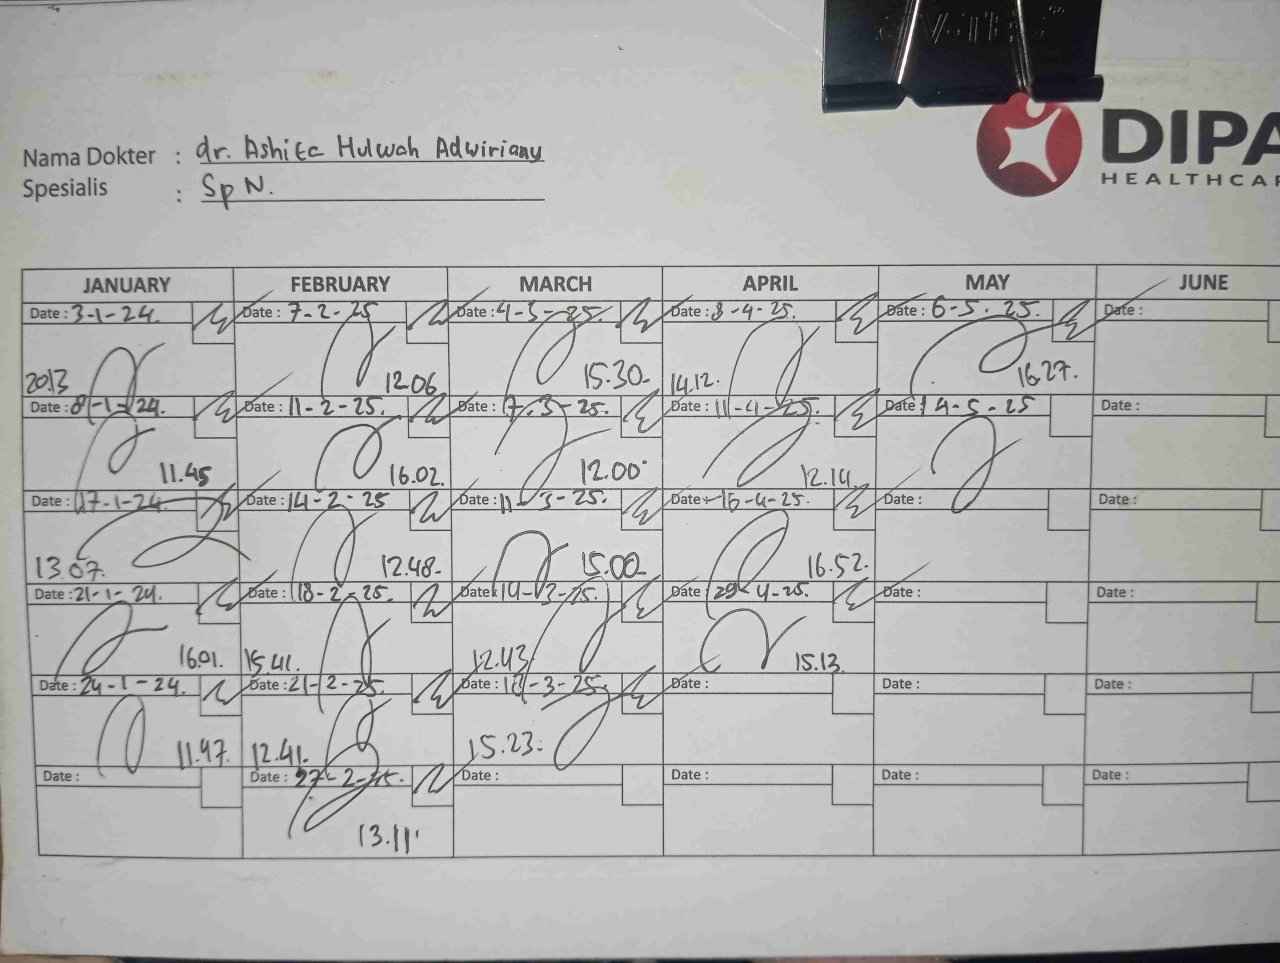 Nama Dokter : dr. Ashita Hulwah Adwiriany
Spesialis : Sp N.
DIPA
HEALTHCAR
JANUARY FEBRUARY MARCH APRIL MAY JUNE
Date : 3-1-24. Date : 7-2-25 Date : 4-3-25. Date : 8-4-25. Date : 6-5.25. Date :
20.13 12.06 15.30 14.12. 16.27.
Date : 8-1-24. Date : 11-2-25. Date : 7.3-25. Date : 11-4-25. Date : 14-5-25 Date :
11.45 16.02. 12.00 12.14.
Date : 17-1-24. Date : 14-2-25 Date : 11-3-25. Date : 15-4-25. Date : Date :
13.07. 12.48. 15.00. 16.52.
Date : 21-1-24. Date : 18-2-25. Date : 14-3-25. Date : 29-4-25. Date : Date :
16.01. 15.41. 12.43 15.13.
Date : 24-1-24. Date : 21-2-25. Date : 18-3-25. Date : Date : Date :
11.47. 12.41. 15.23.
Date : Date : 27-2-25. Date : Date : Date : Date :
13.11